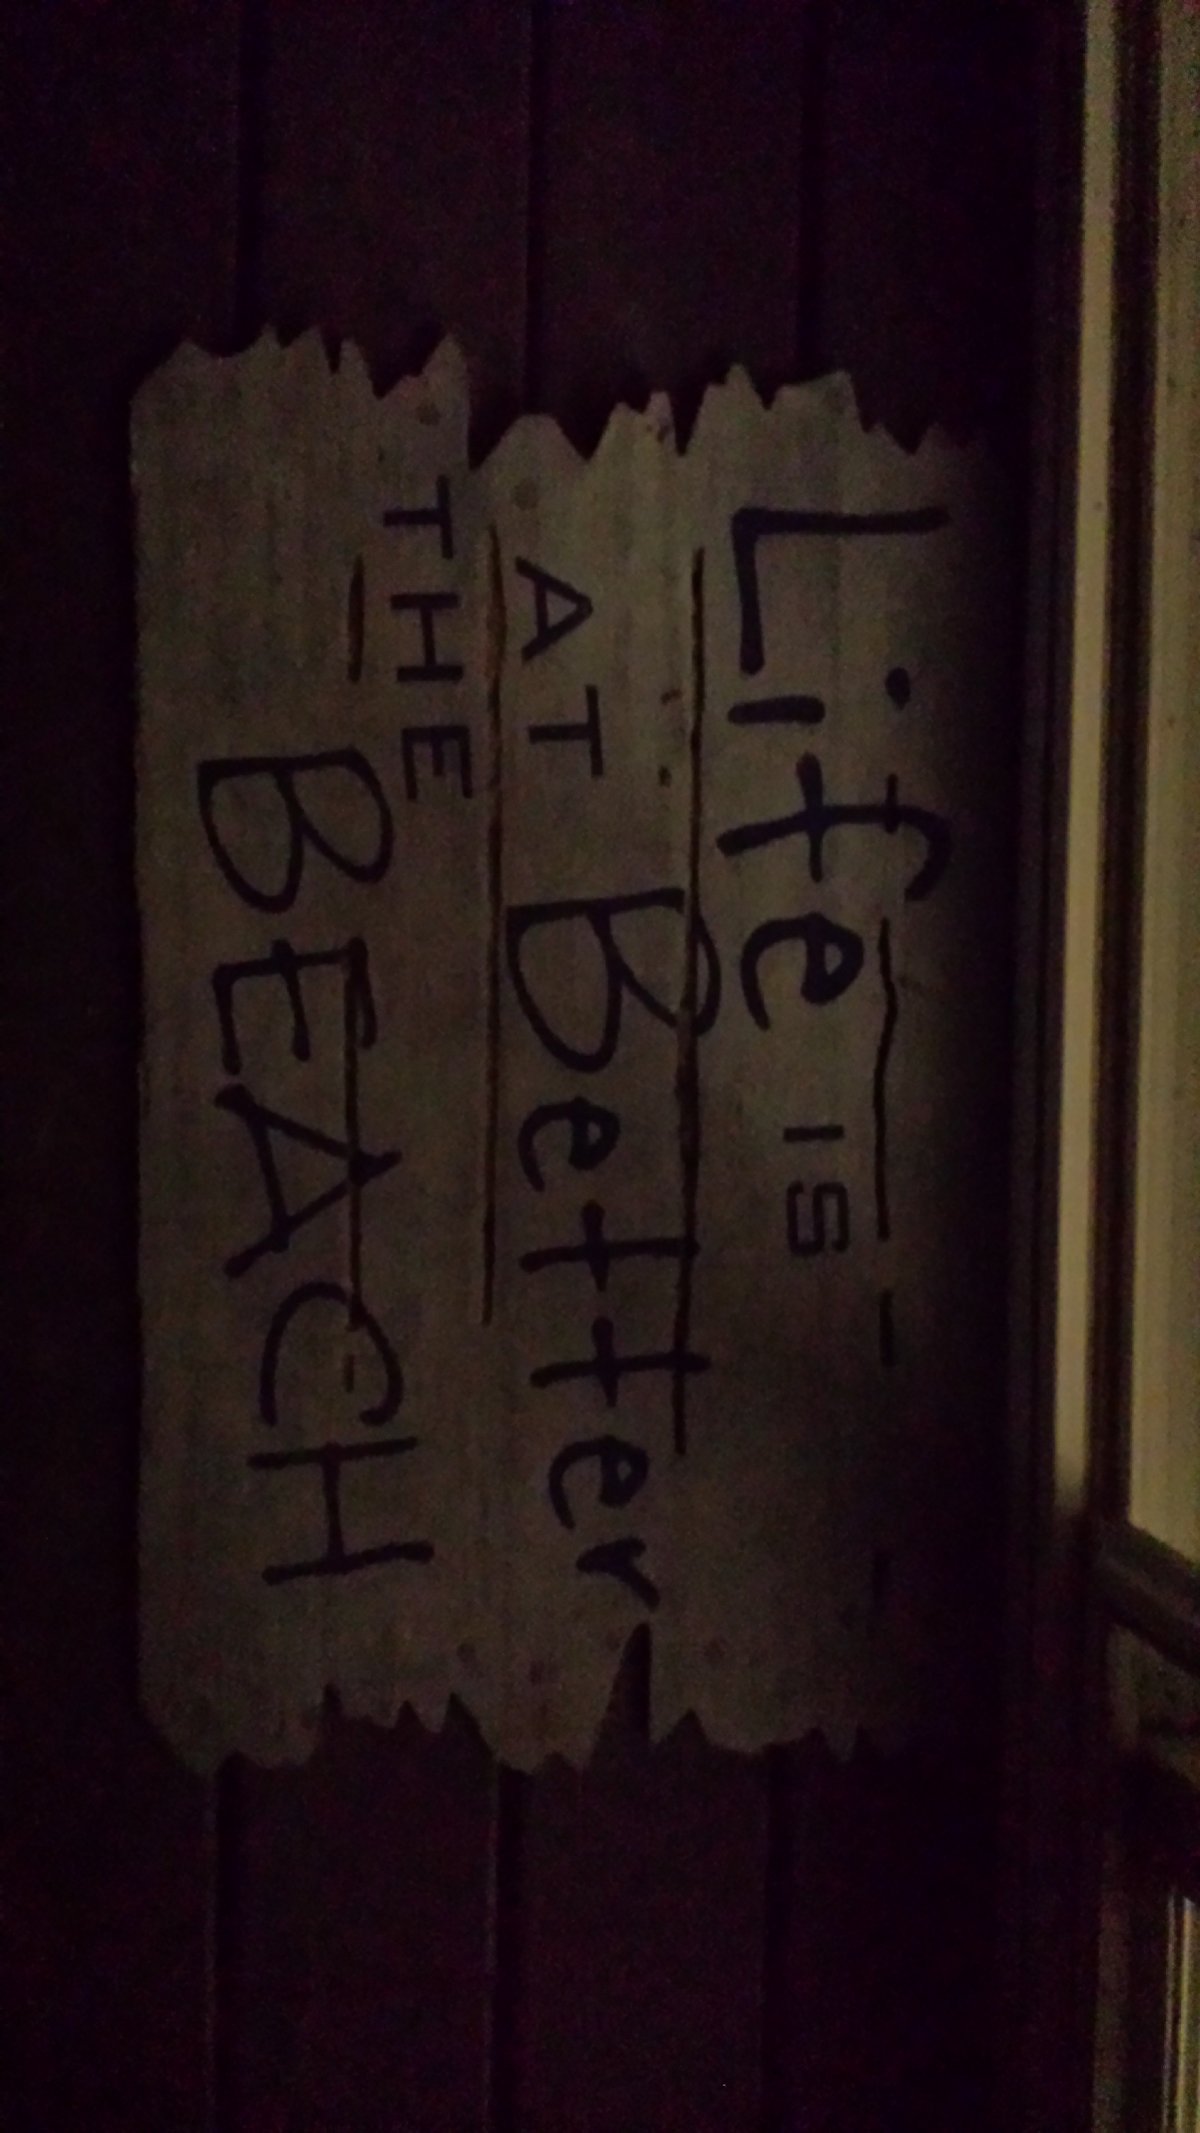 Life IS
AT Better
THE BEACH